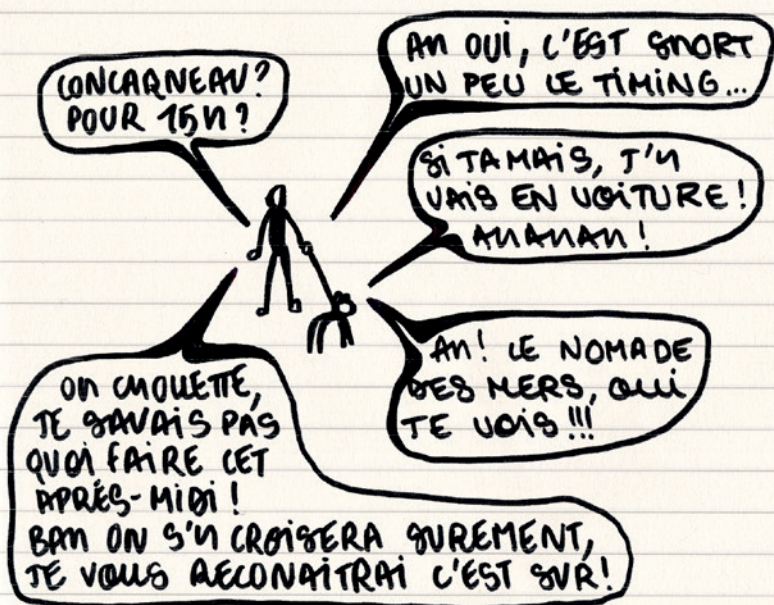 CONCARNEAU?
POUR 15H?
AH OUI, C'EST SHORT
UN PEU LE TIMING...
SI JAMAIS, J'Y
VAIS EN VOITURE !
AHAHAH !
AH ! LE NOMADE
DES MERS, OUI
JE VOIS !!!
OH CHOUETTE,
JE SAVAIS PAS
QUOI FAIRE CET
APRÉS-MIDI !
BAH ON S'Y CROISERA SUREMENT,
JE VOUS RECONAITRAI C'EST SUR !